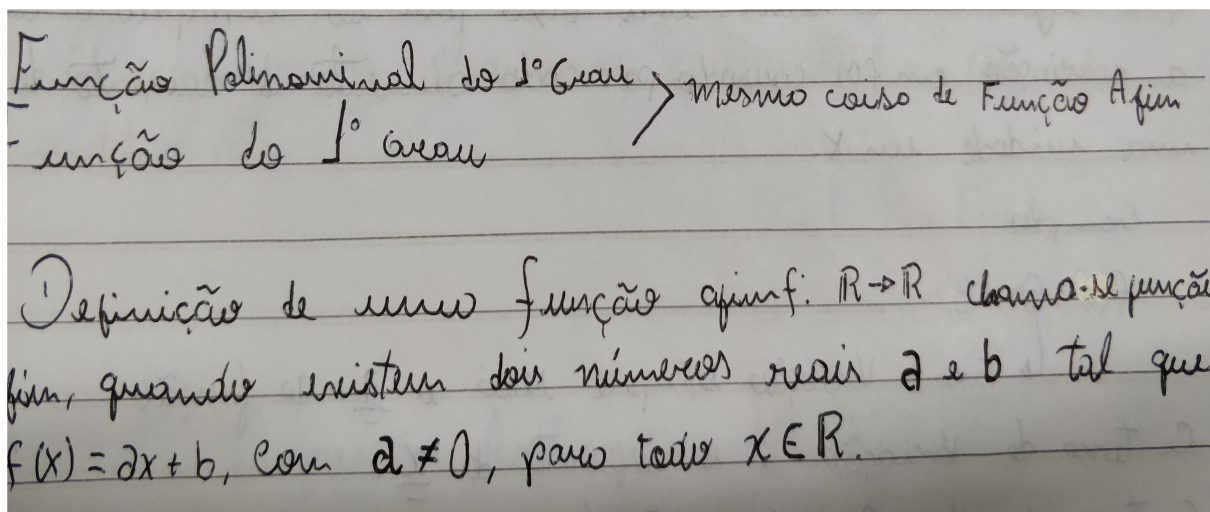 Função Polinominal do 1º Grau > mesmo coisa de Função Afim
Função do 1º Grau
Definição de uma função afim f: R→R chama-se função
fim, quando existem dois números reais a e b tal que
f(x) = ax + b, com a ≠ 0, para todo x ∈ R.